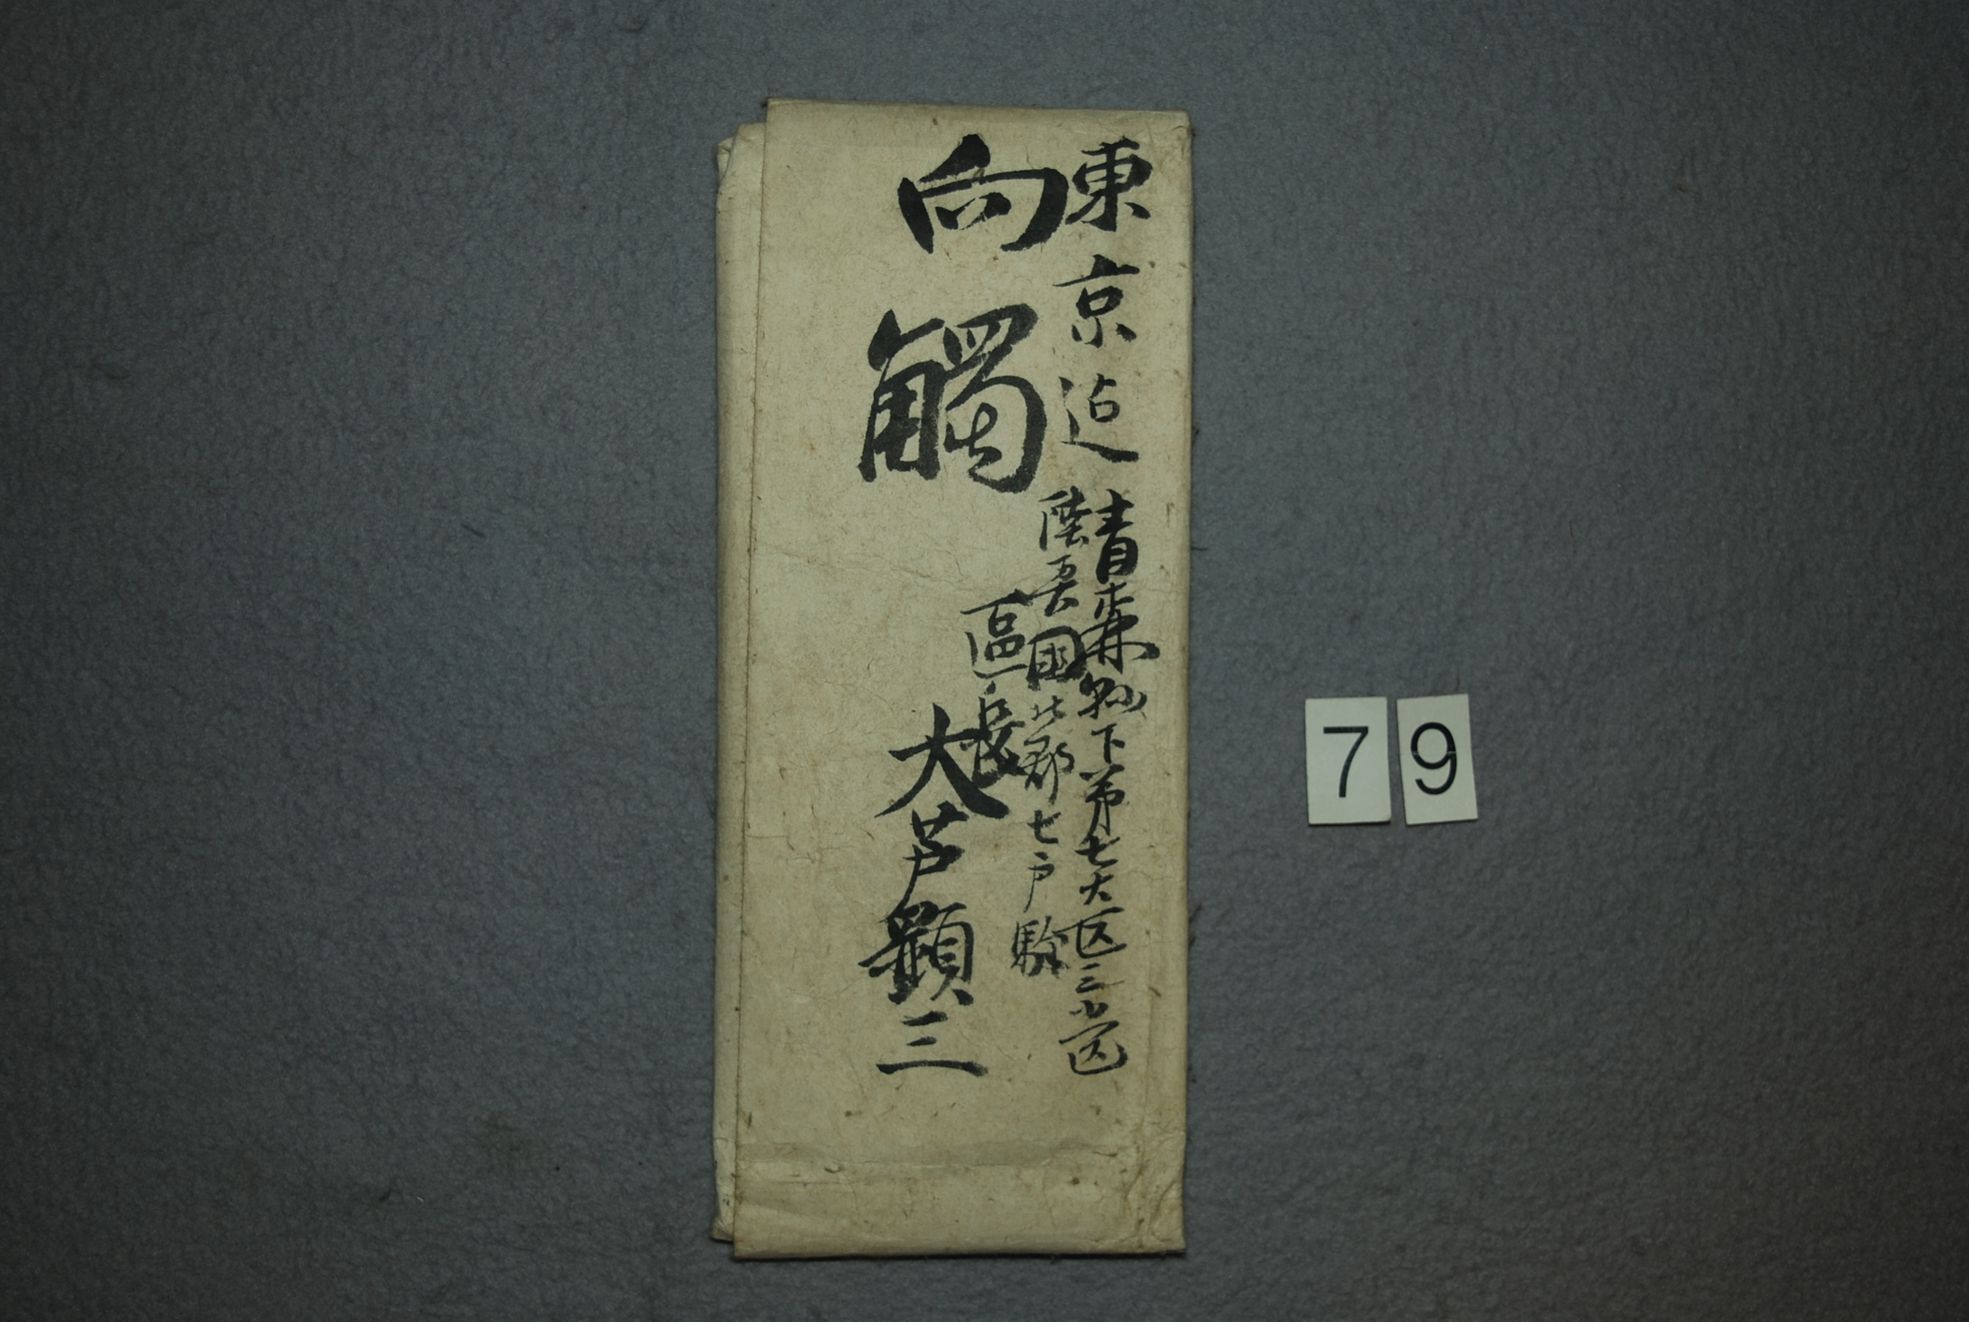 東京迠
青森縣下第七大区三小区
陸奥國北郡七戸驗
向觸
區長
大芦顕三
79